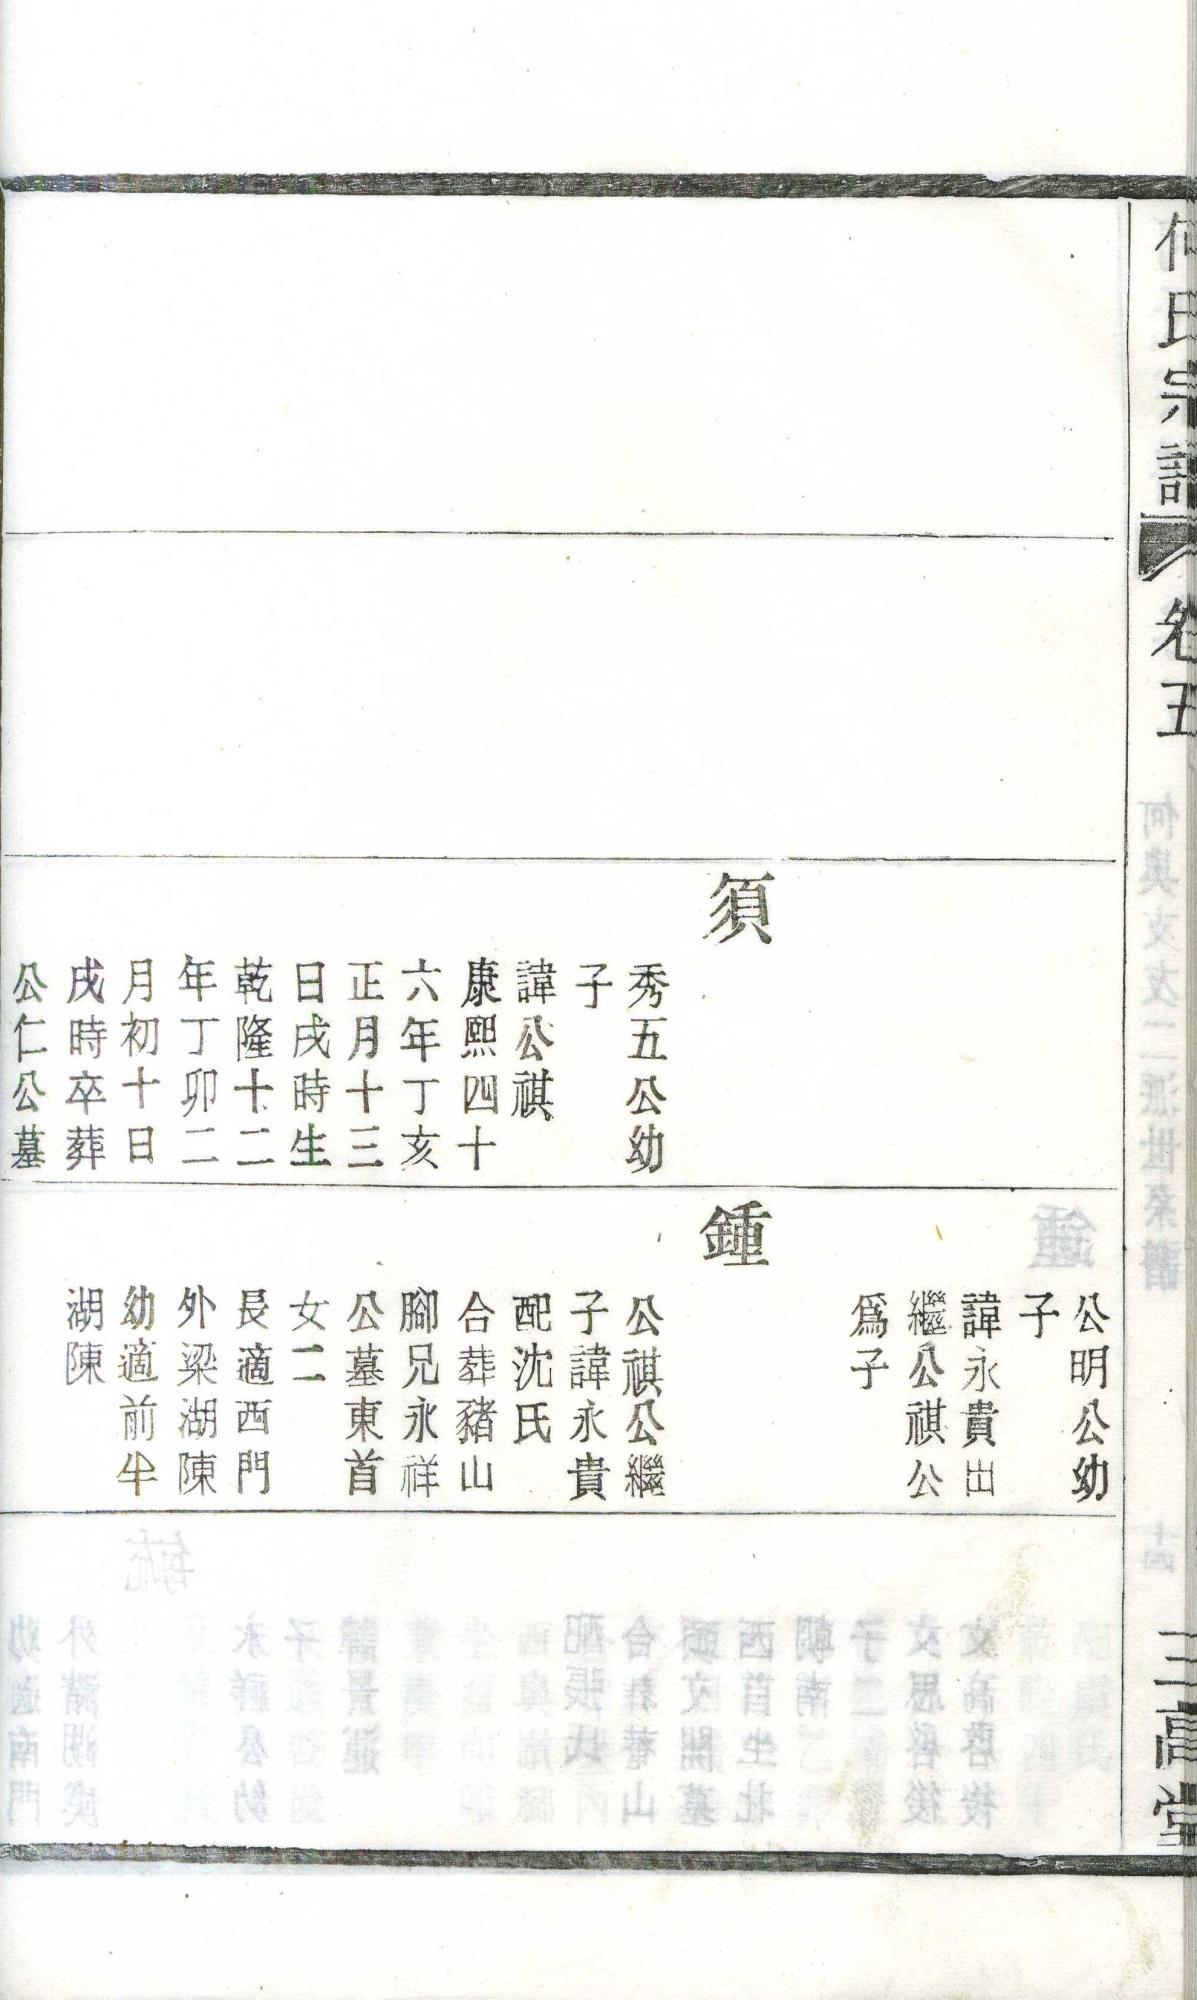 何氏宗譜
卷五
三高堂
須
秀五公幼
子
諱公祺
康熙四十
六年丁亥
正月十三
日戌時生
乾隆十二
年丁卯二
月初十日
戌時卒葬
公仁公墓
公明公幼
子
諱永貴出
繼公祺公
爲子
鍾
公祺公繼
子諱永貴
配沈氏
合葬豬山
腳兄永祥
公墓東首
女二
長適西門
外梁湖陳
幼適前半
湖陳